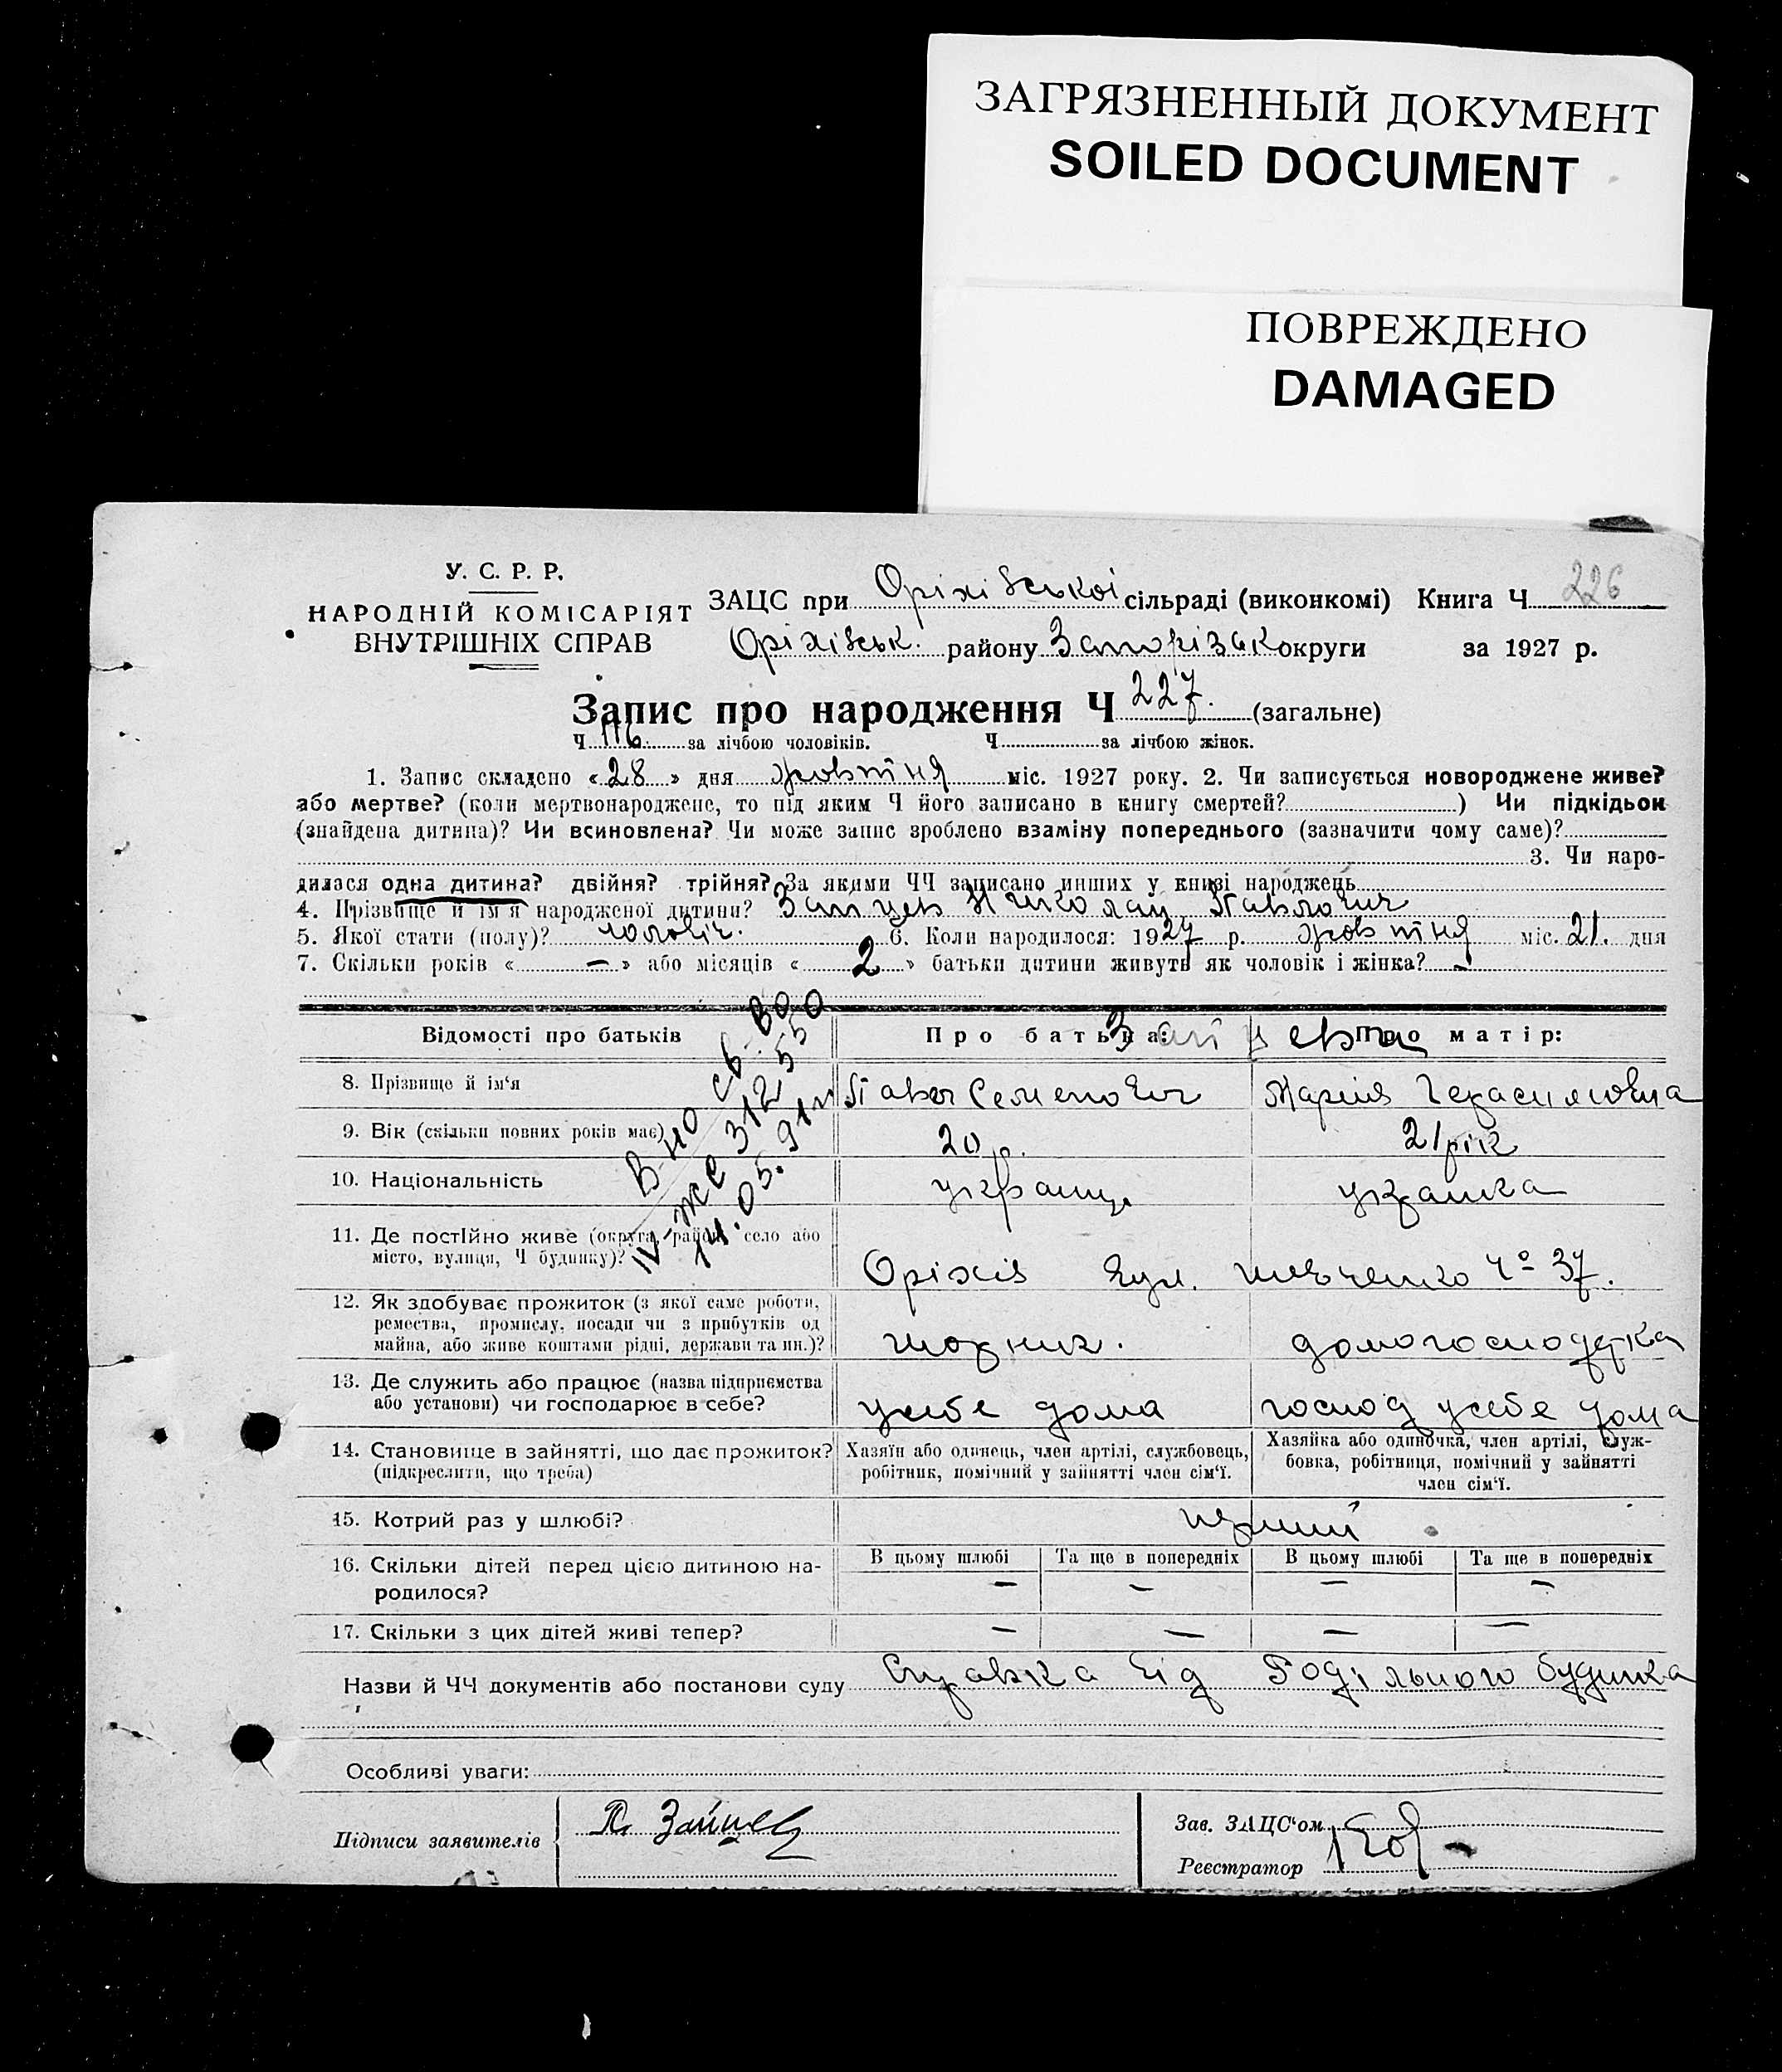 ЗАГРЯЗНЕННЫЙ ДОКУМЕНТ
SOILED DOCUMENT
ПОВРЕЖДЕНО
DAMAGED
У. С. Р. Р.
НАРОДНІЙ КОМІСАРІЯТ
ВНУТРІШНІХ СПРАВ
ЗАЦС при Оріхівської сільраді (виконкомі) Книга Ч 226
Оріхівськ. району Запорізьк округи за 1927 р.
Запис про народження Ч 227. (загальне)
Ч 116. за лічбою чоловіків. Ч за лічбою жінок.
1. Запис складено «28» дня жовтня міс. 1927 року. 2. Чи записується новороджене живе?
або мертве? (коли мертвонароджене, то під яким Ч його записано в книгу смертей? ) Чи підкідьок
(знайдена дитина)? Чи всиновлена? Чи може запис зроблено взаміну попереднього (зазначити чому саме)?
3. Чи наро-
дилася одна дитина? двійня? трійня? За якими ЧЧ записано инших у книзі народжень
4. Прізвище й ім'я народженої дитини? Зайцев Николай Павлович
5. Якої стати (полу)? чоловіч. 6. Коли народилося: 1927 р. жовтня міс. 21. дня
7. Скільки років « — » або місяців « 2 » батьки дитини живуть як чоловік і жінка? -
Відомості про батьків Про батька: Про матір:
Зайцева
8. Прізвище й ім‘я Павел Семенович Мария Герасимовна
9. Вік (скільки повних років має) 20 р. 21 рік
10. Національність українц. українка
В-но св-во
IV-ЖС 312550
14.05.91г
11. Де постійно живе (округа, район, село або
місто, вулиця, Ч будинку)? Оріхів вул. Шевченко Ч° 37.
12. Як здобуває прожиток (з якої саме роботи,
ремества, промислу, посади чи з прибутків од
майна, або живе коштами рідні, держави та ин.)? шорник. домогосподерка
13. Де служить або працює (назва підприємства
або установи) чи господарює в себе? у себе дома господ у себе дома
14. Становище в зайнятті, що дає прожиток?
(підкреслити, що треба)
Хазяїн або одинець, член артілі, службовець,
робітник, помічний у зайнятті член сім‘ї.
Хазяйка або одиночка, член артілі, служ-
бовка, робітниця, помічний у зайнятті
член сім‘ї.
15. Котрий раз у шлюбі? перший
16. Скільки дітей перед цією дитиною на-
родилося?
В цьому шлюбі Та ще в попередніх В цьому шлюбі Та ще в попередніх
— — — —
17. Скільки з цих дітей живі тепер? — — — —
Назви й ЧЧ документів або постанови суду Справка від Родільного будинка
Особливі уваги:
Підписи заявителів П. Зайцев
Зав. ЗАЦС‘ом
Реєстратор